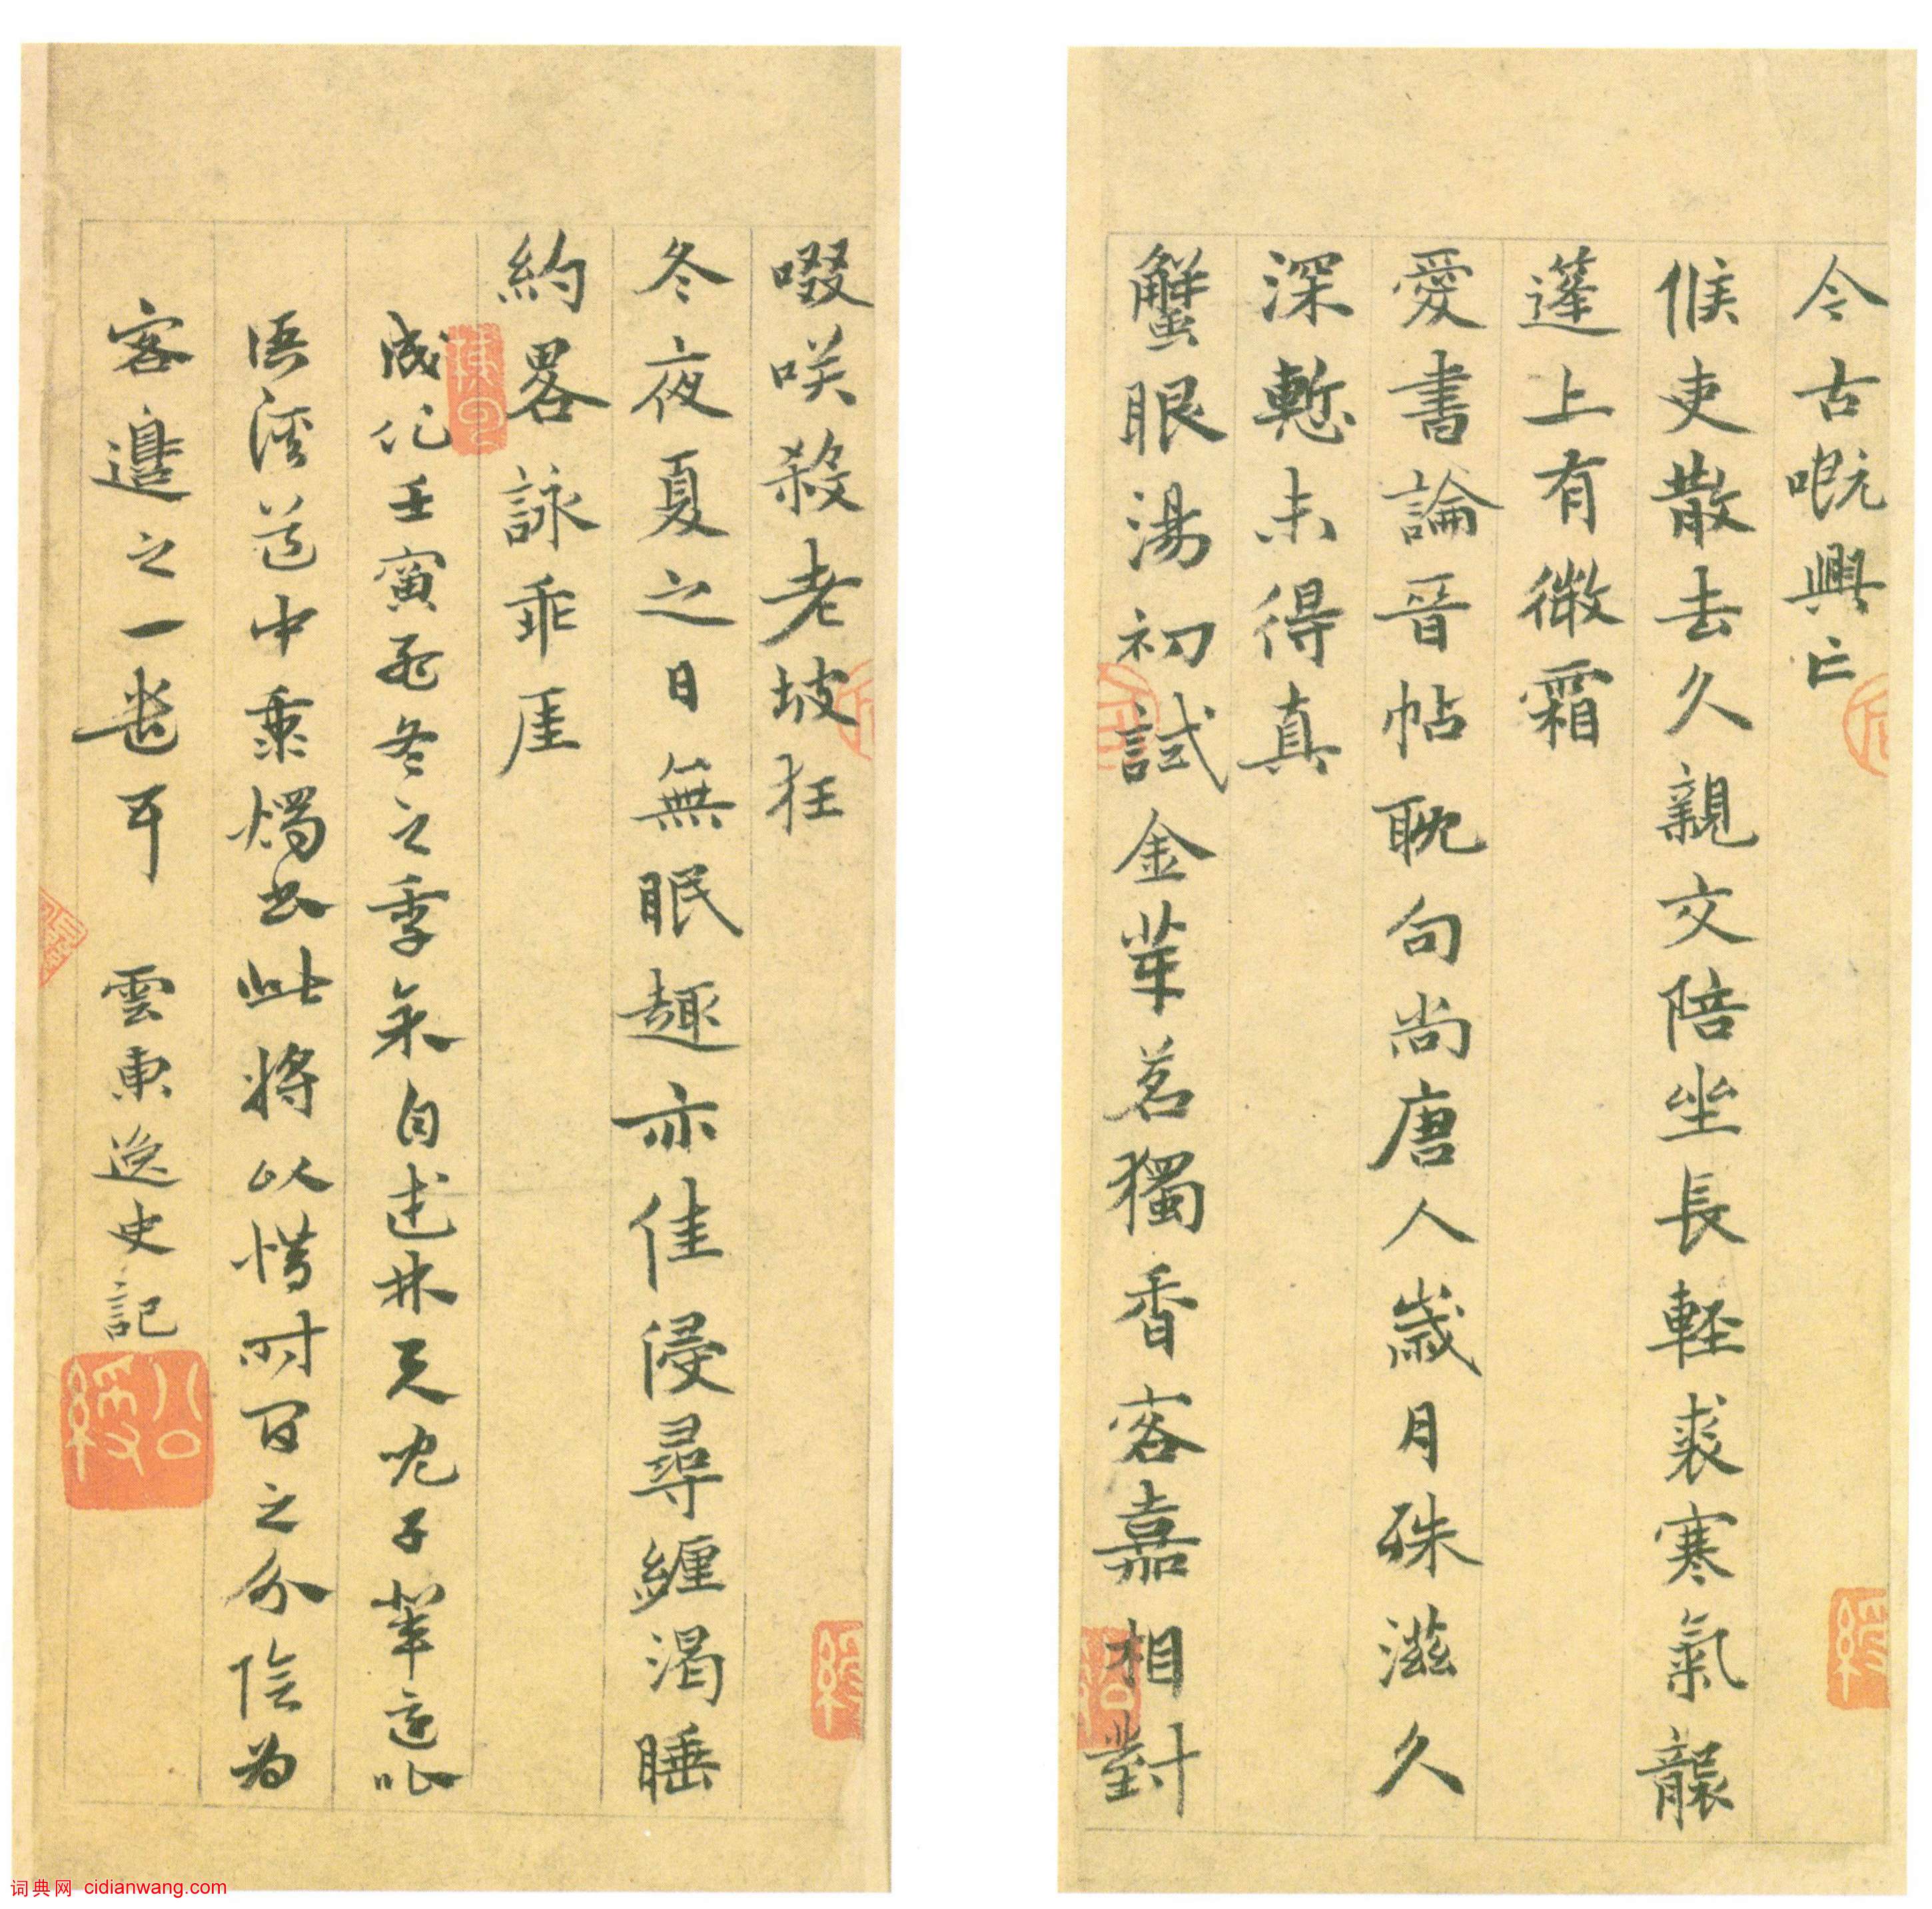 今古嘅興亡
候吏散去久親文陪坐長軽裘寒氣襲
蓬上有微霜
愛書論晉帖耽句尚唐人歲月殊滋久
深慙未得真
蟹眼湯初試金芽茗獨香客嘉相對
啜咲殺老坡狂
冬夜夏之日無眠趣亦佳侵尋纏渴睡
約畧詠乖厓
成化壬寅孟冬之季余自述林天
語溪道中秉燭書此將以惜時百之分陰為
客邊之一耳 雲東逸史記
公綬
词典网 cidianwang.com